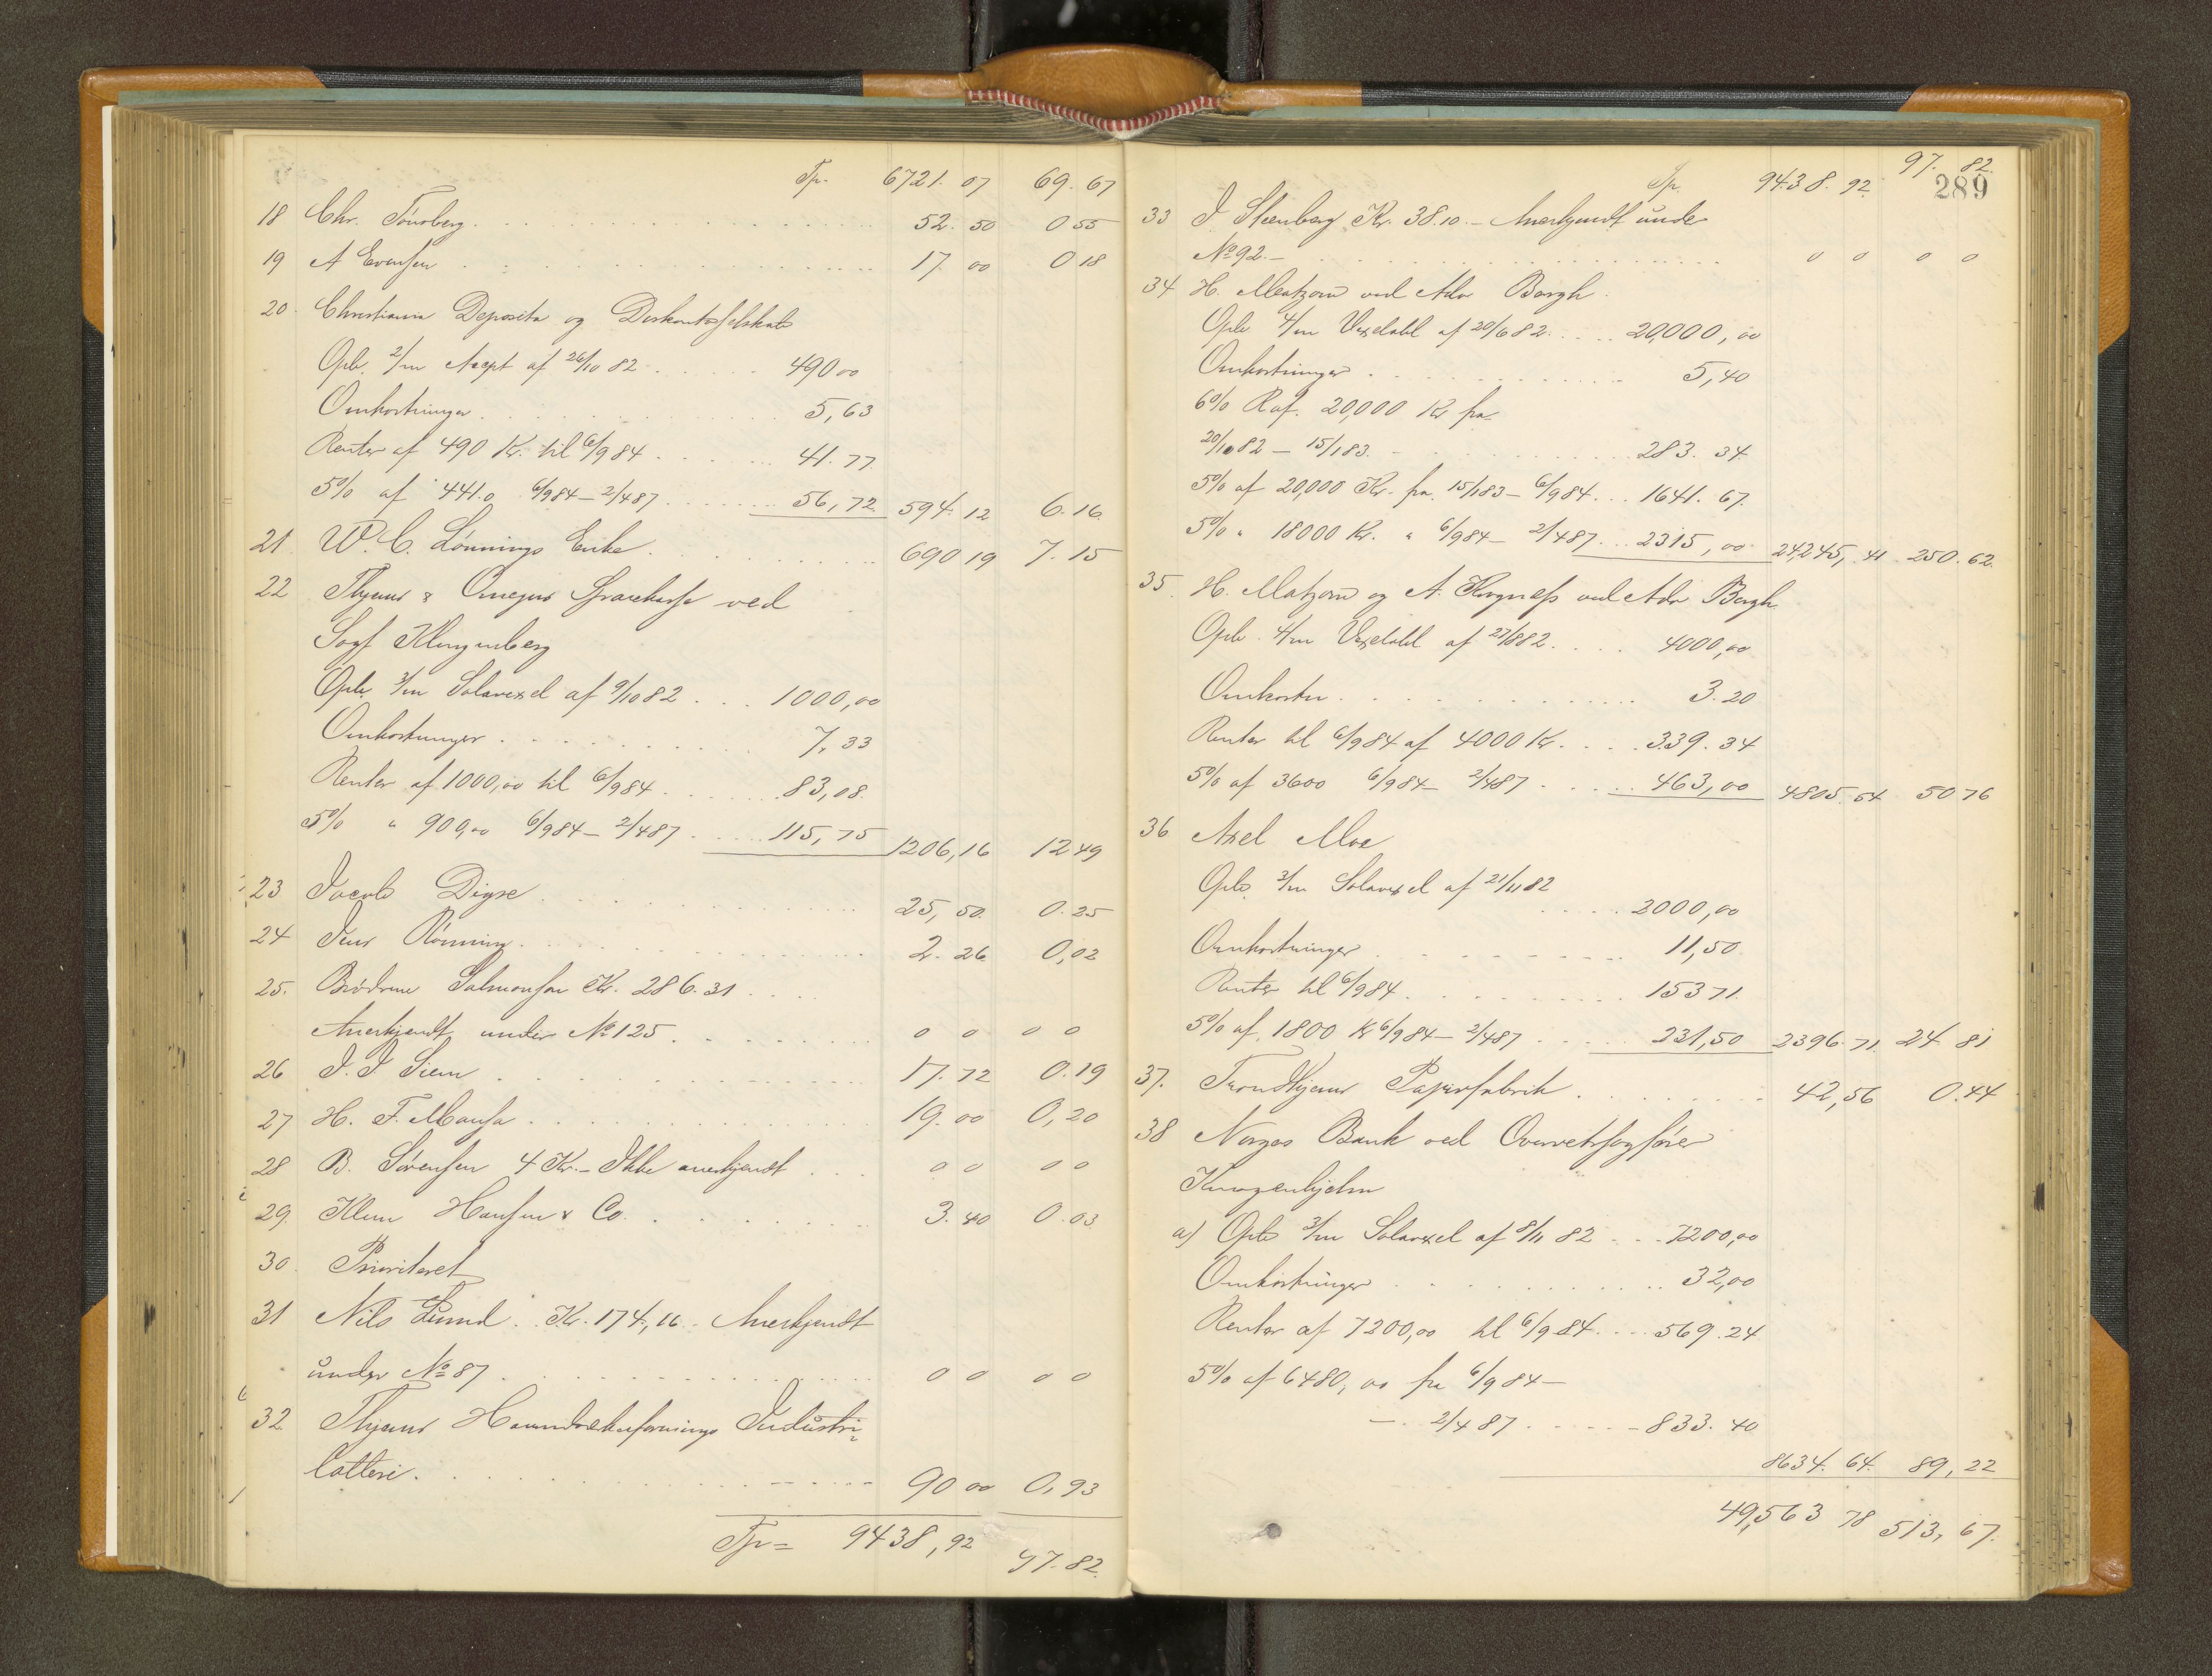 Tp. 6721. 07 69. 67
18 Chr. Tønsberg 52. 50 0 55
19 A Evensen 17 00 0 18
20. Christiania Deposito og Diskontoselskab
Opr. 2/m Accept af 26/10 82 490 00
Omkostninger 5,63
Renter af 490 Kr. til 6/9 84 41. 77
5% af 441.0 6/9 84 – 2/4 87 56,72 594. 12 6. 16.
21 W. C. Lønnings Enke 690 19 7. 15
22 Thjems & Omegns Sparekasse ved
Sagf Klingenberg
Opr. 3/m Solavexel af 9/10 82 1000,00
Omkostninger 7,33
Renter af 1000,00 til 6/9 84 83,08.
5% " 900,00 6/9 84 – 2/4 87 115,75 1206,16 12 49
23 Jacob Digre 25, 50. 0. 25
24 Jens Rønning 2. 26 0,02
25. Brødrene Salmonsen Kr. 286. 31
Anerkjendt under No 125 0 0 0 0
26 J. J. Siem 17. 72 0. 19
27 H. F. 19. 00 0,20
28 B. Sørensen 4 Kr. – Ikke anerkjendt 0 0 0 0
29. Klem Hansen & Co. 3. 40 0. 03
30. Prioriteret
31 Nils Lund. Kr. 174,16. Anerkjendt
under No 87 0 0 0 0
32. Thjems Industri-
lotteri 90 00 0,93
Tp = 9438,92 97. 82.
289
Tp. 9438. 92 97. 82.
33 J. Steenberg Kr. 38.10 – Anerkjendt under
No 92. – 0 0 0 0
34 H. Matzow ved Adv Bergh
Opr 4/m af 20/6 82 20,000,00
Omkostninger 5,40
6% R af. 20,000 Kr fra
20/10 82 – 15/1 83. 283. 34.
5% af 20,000 Kr. fra 15/1 83 – 6/9 84 1641. 67.
5% " 18000 Kr. " 6/9 84 – 2/4 87 2315,00 24,245,41 250. 62.
35. H. Matzow og A. Hognes ved Adv Bergh
Opr. 4/m af 27/8 82 4000,00
Omkostn 3. 20
Renter til 6/9 84 af 4000 Kr. 339. 34
5% af 3600 6/9 84 – 2/4 87 463,00 4805. 54 50 76
36 Axel Moe
Opr. 3/m Solavexel af 21/11 82
2000,00
Omkostninger 11,50.
Renter til 6/9 84 153 71.
5% af 1800 Kr 6/9 84 – 2/4 87 231,50 2396. 71. 24 81
37. Trondhjems Papirfabrik 42,56 0. 44
38 Norges Bank ved Overretssagfører
Knagenhjelm
a) Opr 3/m Solavexel af 8/11 82 7200,00
Omkostninger 32,00
Renter af 7200,00 til 6/9 84 569. 24
5% af 6480,00 fra 6/9 84 –
– 2/4 87 833. 40
8634. 64. 89,22
49,563 78 513, 67.